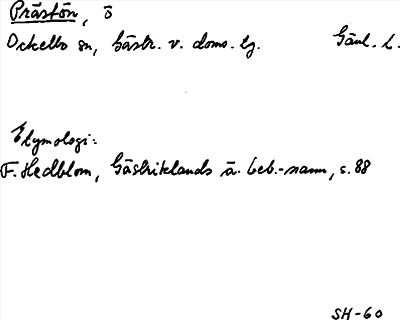 Prästön, ö
Ockelbo sn, Gästr. v. doms. tg. Gävl. l.
Etymologi:
F. Hedblom, Gästriklands ä. beb.-namn, s. 88
SH-60